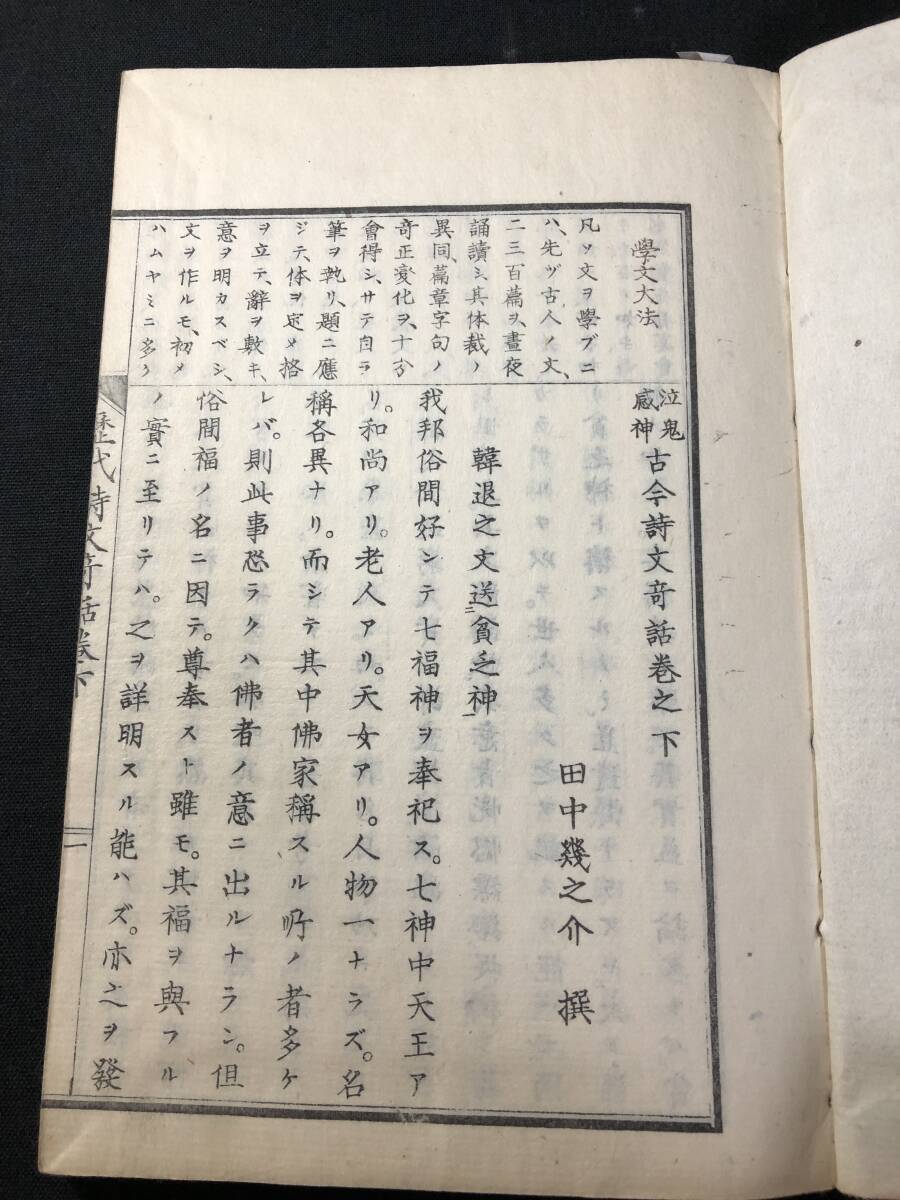 學文大法
凡ソ文ヲ學ブニ
ハ、先ヅ古人ノ文、
二三百篇ヲ、晝夜
誦讀シ、其体裁ノ
異同、篇章字句ノ
奇正変化ヲ、十分
會得シ、サテ自ラ
筆ヲ執リ、題ニ應
ジテ、体ヲ定メ格
ヲ立テ、辭ヲ敷キ、
意ヲ明カスベシ、
文ヲ作ルモ、初メ
ハムヤミニ多ク
泣鬼
感神
古今詩文奇話巻之下
田中幾之介 撰
韓退之文送㆓貧乏神㆒
我邦俗間好ンテ七福神ヲ奉祀ス。七神中天王ア
リ。和尚アリ。老人アリ。天女アリ。人物一ナラズ。名
稱各異ナリ。而シテ其中佛家稱スル所ノ者多ケ
レバ。則此事恐ラクハ佛者ノ意ニ出ルナラン。但
俗間福ノ名ニ因テ。尊奉スト雖モ。其福ヲ與フル
ノ實ニ至リテハ。之ヲ詳明スル能ハズ。亦之ヲ發
歴代詩文奇話巻下
一